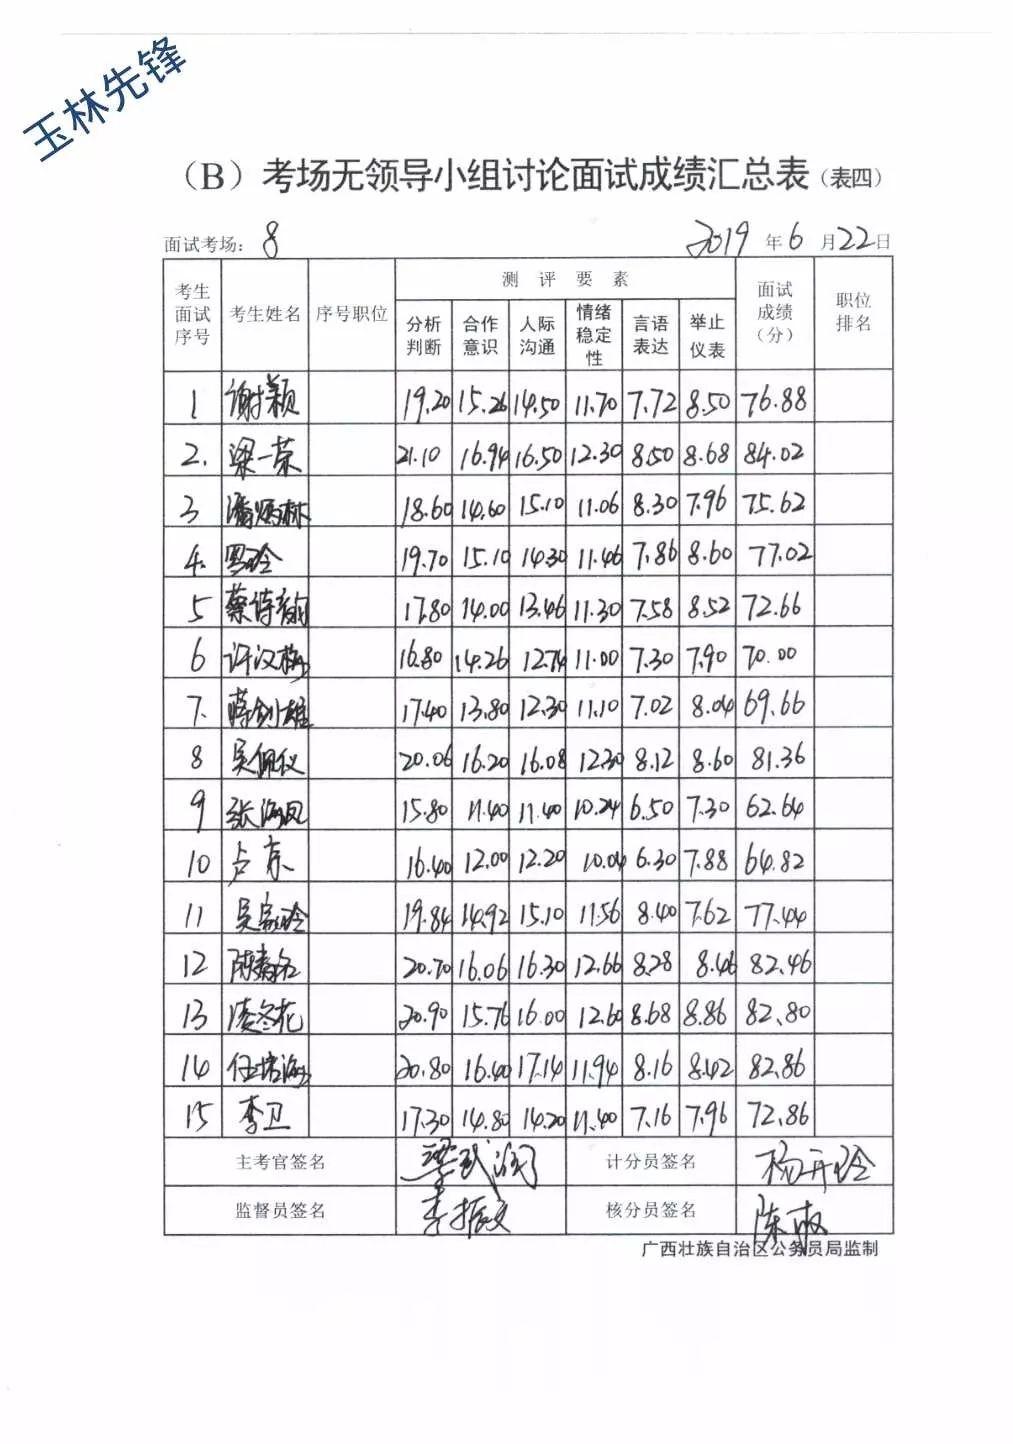 玉林先锋
（B）考场无领导小组讨论面试成绩汇总表（表四）
面试考场：8 2019年6月22日
考生面试序号 考生姓名 序号职位 测评要素 面试成绩（分） 职位排名
分析判断 合作意识 人际沟通 情绪稳定性 言语表达 举止仪表
1 谢颖 19.20 15.26 14.50 11.70 7.72 8.50 76.88
2. 梁一荣 21.10 16.94 16.50 12.30 8.50 8.68 84.02
3 潘炳林 18.60 14.60 15.10 11.06 8.30 7.96 75.62
4. 罗玲 19.70 15.10 14.30 11.46 7.86 8.60 77.02
5 蔡诗韵 17.80 14.00 13.46 11.30 7.58 8.52 72.66
6 许汉梅 16.80 14.26 12.74 11.00 7.30 7.90 70.00
7. 蒋剑雄 17.40 13.80 12.30 11.10 7.02 8.04 69.66
8 吴佩仪 20.06 16.20 16.08 12.30 8.12 8.60 81.36
9 张海凤 15.80 11.40 11.40 10.24 6.50 7.30 62.64
10 卢东 16.40 12.00 12.20 10.04 6.30 7.88 64.82
11 吴 玲 19.84 14.92 15.10 11.56 8.40 7.62 77.44
12 陈 20.70 16.06 16.30 12.66 8.28 8.46 82.46
13 凌冬花 20.90 15.76 16.00 12.60 8.68 8.86 82.80
14 任培海 20.80 16.40 17.14 11.94 8.16 8.42 82.86
15 李卫 17.30 14.80 14.20 11.40 7.16 7.96 72.86
主考官签名 梁武 计分员签名 杨开玲
监督员签名 李振文 核分员签名 陈
广西壮族自治区公务员局监制